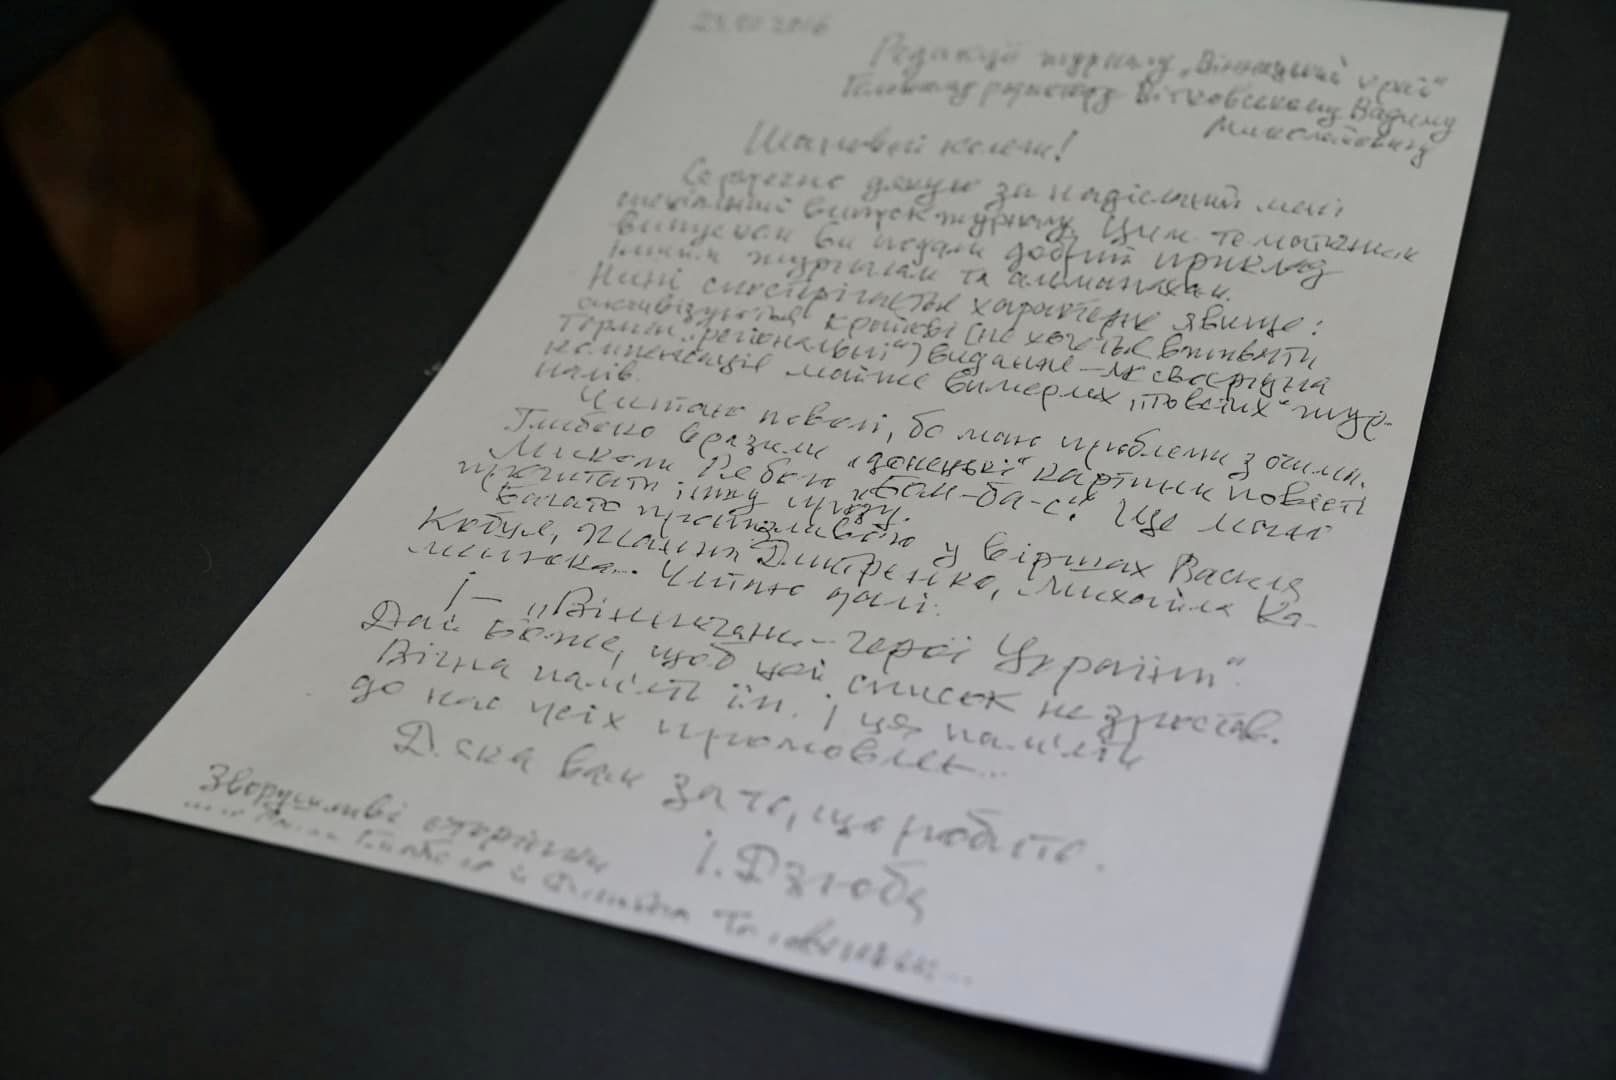 2016
Редакції журналу „Вінницький край“
Головному редактору Вітковському Вадиму
Миколайовичу
Шановні колеги!
Сердечно дякую за надісланий мені
спеціальний випуск журналу. Цим тематичним
випуском ви подали добрий приклад
іншим журналам та альманахам.
Нині спостерігається характерне явище:
активізуються крайові (не хочеться вживати
термін „регіональні“) видання – як своєрідна
компенсація майже вимерлих „товстих“ жур-
налів.
Читаю поволі, бо маю проблеми з очима.
Глибоко вразили „донецькі“ картини повісті
Миколи Рябого „Бан-ба-с“. Ще маю
прочитати іншу прозу.
Багато прочитав у віршах Василя
Кобця, Жанни Дмитренко, Михайла Ка-
менюка... Читаю далі.
І – „Вінничани – герої України“.
Дай Боже, щоб цей список не зростав.
Вічна пам'ять їм. І ця пам'ять
до нас усіх промовляє...
Дяка вам за те, що робите.
І. Дзюба
Зворушливі сторінки